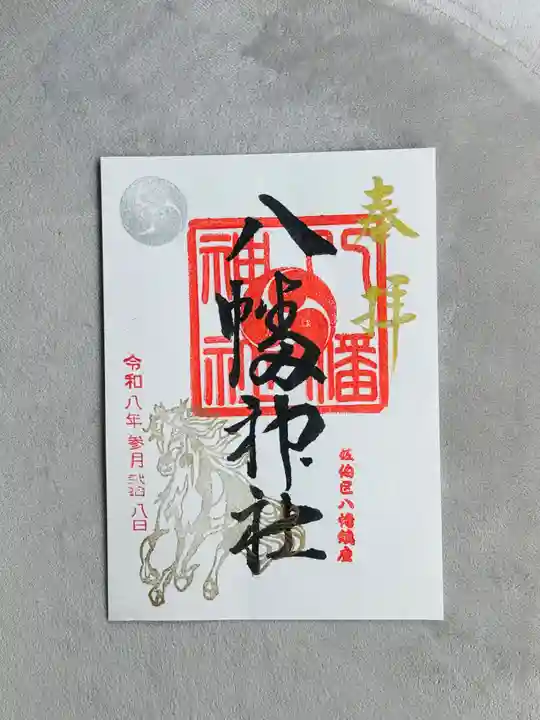 奉拝
佐伯区八幡鎮座
八幡神社
八幡神社
令和八年参月弐拾八日